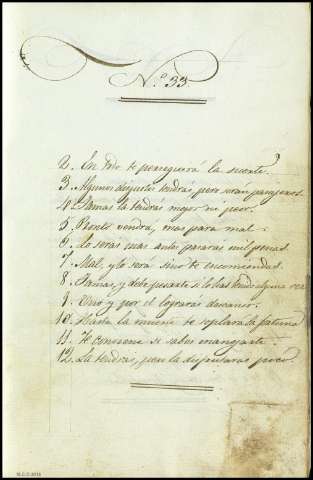 N.º 33
2. En todo te perseguirá la suerte.
3. Algunos disgustos tendrás, pero serán pasageros.
4. Jamas la tendrás mejor ni peor.
5. Pronto vendrá, mas para mal.
6. Lo serás mas antes pasaras mil penas.
7. Mal, y lo será sino te enomiendas.
8. Jamas, y debe pesarte si lo has sido alguna vez
9. Uno y por el lograrás descanso.
10. Hasta la muerte te soplara la fortuna
11. Te conviene si sabes manejarte.
12. La tendrás, pero la disfrutaras poco.